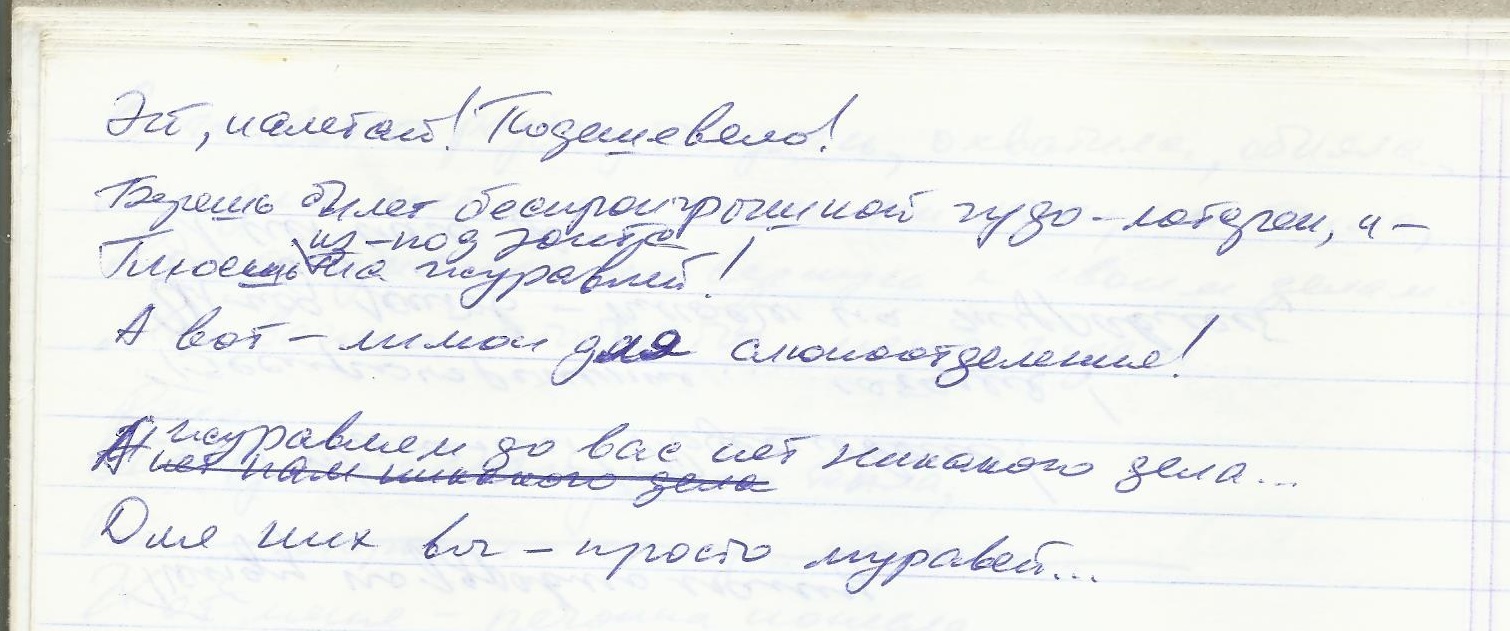 Эй, налетай! Подешевело!
Берешь билет беспроигрышной чудо-лотереи, и –
из-под зонта
Плюешь на журавлей!
А вот – лимон для слюноотделения!
А журавлям до вас нет никакого дела...
нет нам никакого дела
Для них вы – просто муравей...